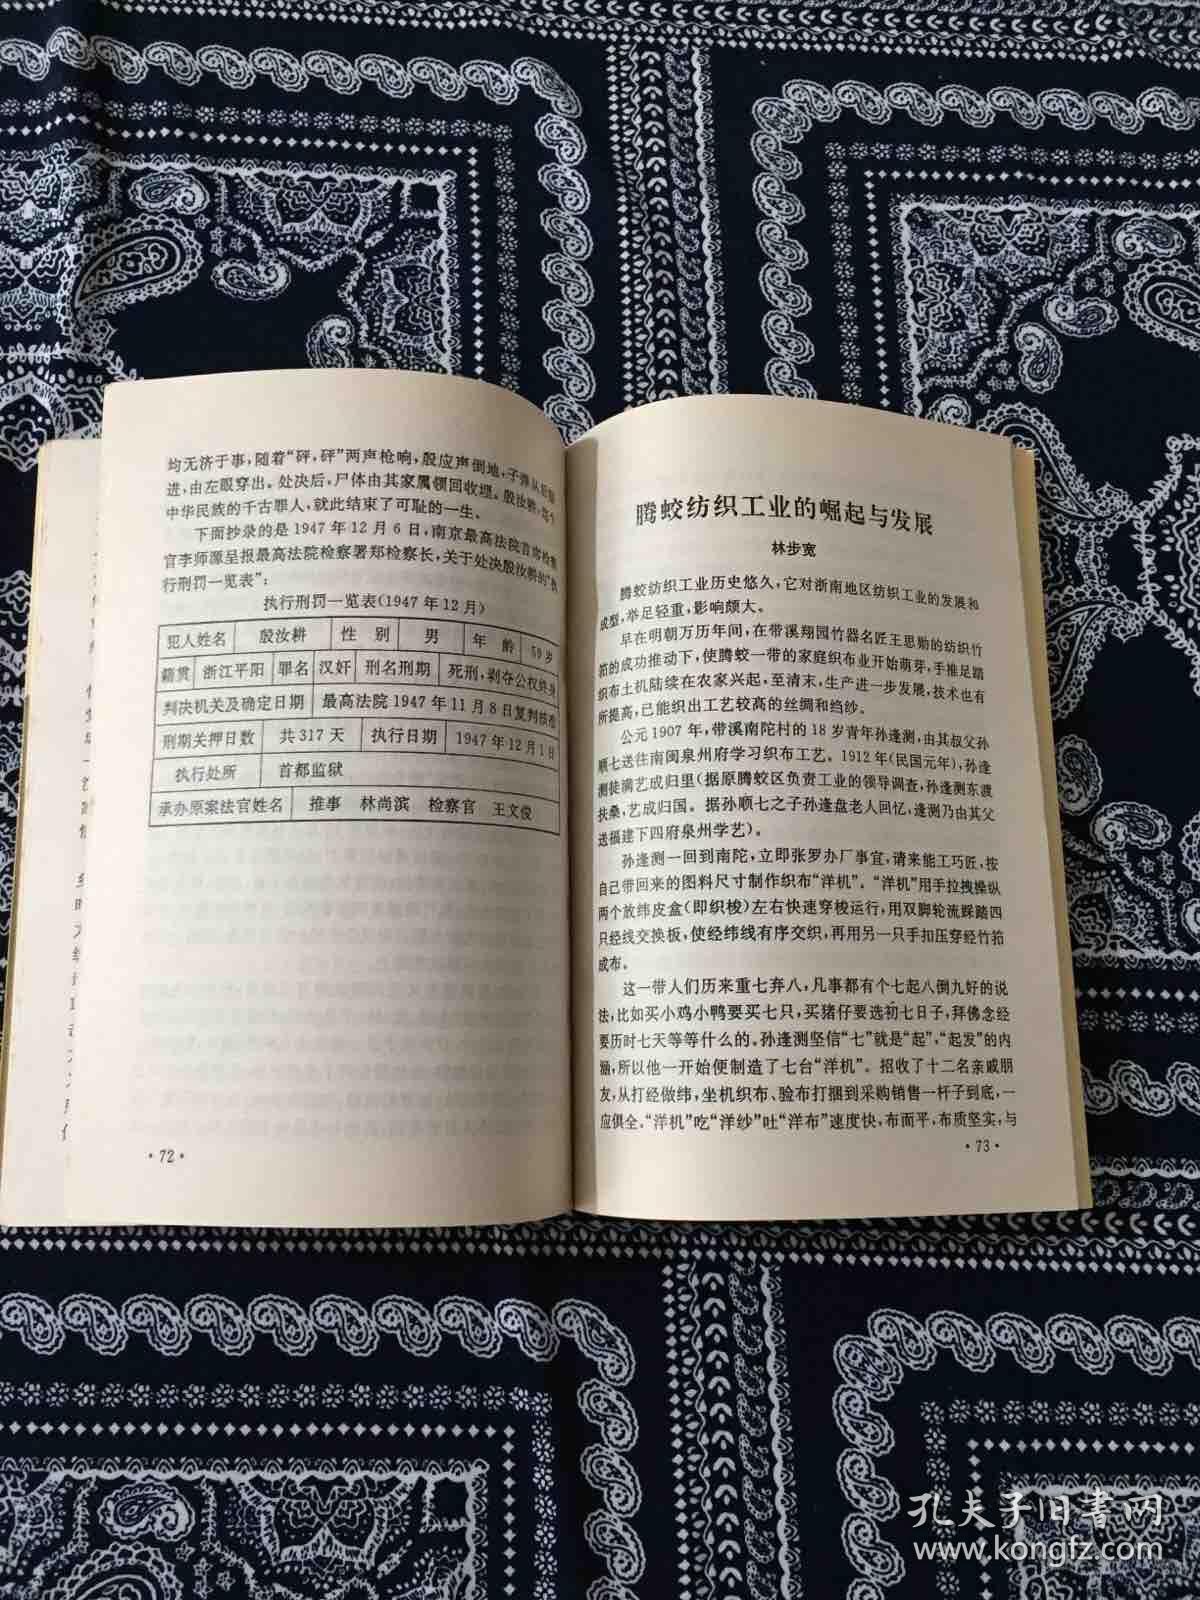 均无济于事，随着“砰，砰”两声枪响，殷应声倒地，子弹从后脑
进，由左眼穿出。处决后，尸体由其家属领回收埋。殷汝耕，这个
中华民族的千古罪人，就此结束了可耻的一生。
下面抄录的是1947年12月6日，南京最高法院首席检察
官李师源呈报最高法院检察署郑检察长，关于处决殷汝耕的“执
行刑罚一览表”：
执行刑罚一览表（1947年12月）
犯人姓名 殷汝耕 性 别 男 年 龄 59岁
籍贯 浙江平阳 罪名 汉奸 刑名刑期 死刑，剥夺公权终身
判决机关及确定日期 最高法院1947年11月8日复判核准
刑期关押日数 共317天 执行日期 1947年12月1日
执行处所 首都监狱
承办原案法官姓名 推事 林尚滨 检察官 王文俊
·72·
腾蛟纺织工业的崛起与发展
林步宽
腾蛟纺织工业历史悠久，它对浙南地区纺织工业的发展和
成型，举足轻重，影响颇大。
早在明朝万历年间，在带溪翔园竹器名匠王思勋的纺织竹
筘的成功推动下，使腾蛟一带的家庭织布业开始萌芽，手推足踏
织布土机陆续在农家兴起，至清末，生产进一步发展，技术也有
所提高，已能织出工艺较高的丝绸和绉纱。
公元1907年，带溪南陀村的18岁青年孙逢测，由其叔父孙
顺七送往南闽泉州府学习织布工艺。1912年（民国元年），孙逢
测徒满艺成归里（据原腾蛟区负责工业的领导调查，孙逢测东渡
扶桑，艺成归国。据孙顺七之子孙逢盘老人回忆，逢测乃由其父
送福建下四府泉州学艺）。
孙逢测一回到南陀，立即张罗办厂事宜，请来能工巧匠，按
自己带回来的图料尺寸制作织布“洋机”。“洋机”用手拉拽操纵
两个放纬皮盒（即织梭）左右快速穿梭运行，用双脚轮流踩踏四
只经线交换板，使经纬线有序交织，再用另一只手扣压穿经竹筘
成布。
这一带人们历来重七弃八，凡事都有个七起八倒九好的说
法，比如买小鸡小鸭要买七只，买猪仔要选初七日子，拜佛念经
要历时七天等等什么的。孙逢测坚信“七”就是“起”，“起发”的内
涵，所以他一开始便制造了七台“洋机”。招收了十二名亲戚朋
友，从打经做纬，坐机织布、验布打捆到采购销售一杆子到底，一
应俱全。“洋机”吃“洋纱”吐“洋布”速度快，布面平，布质坚实，与
·73·
孔夫子旧书网
www.kongfz.com